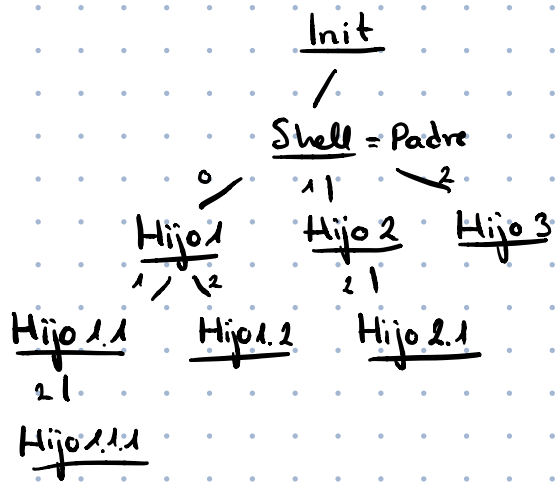 Init
Shell = Padre
0 1 2
Hijo 1 Hijo 2 Hijo 3
1 2 2
Hijo 1.1 Hijo 1.2 Hijo 2.1
2
Hijo 1.1.1